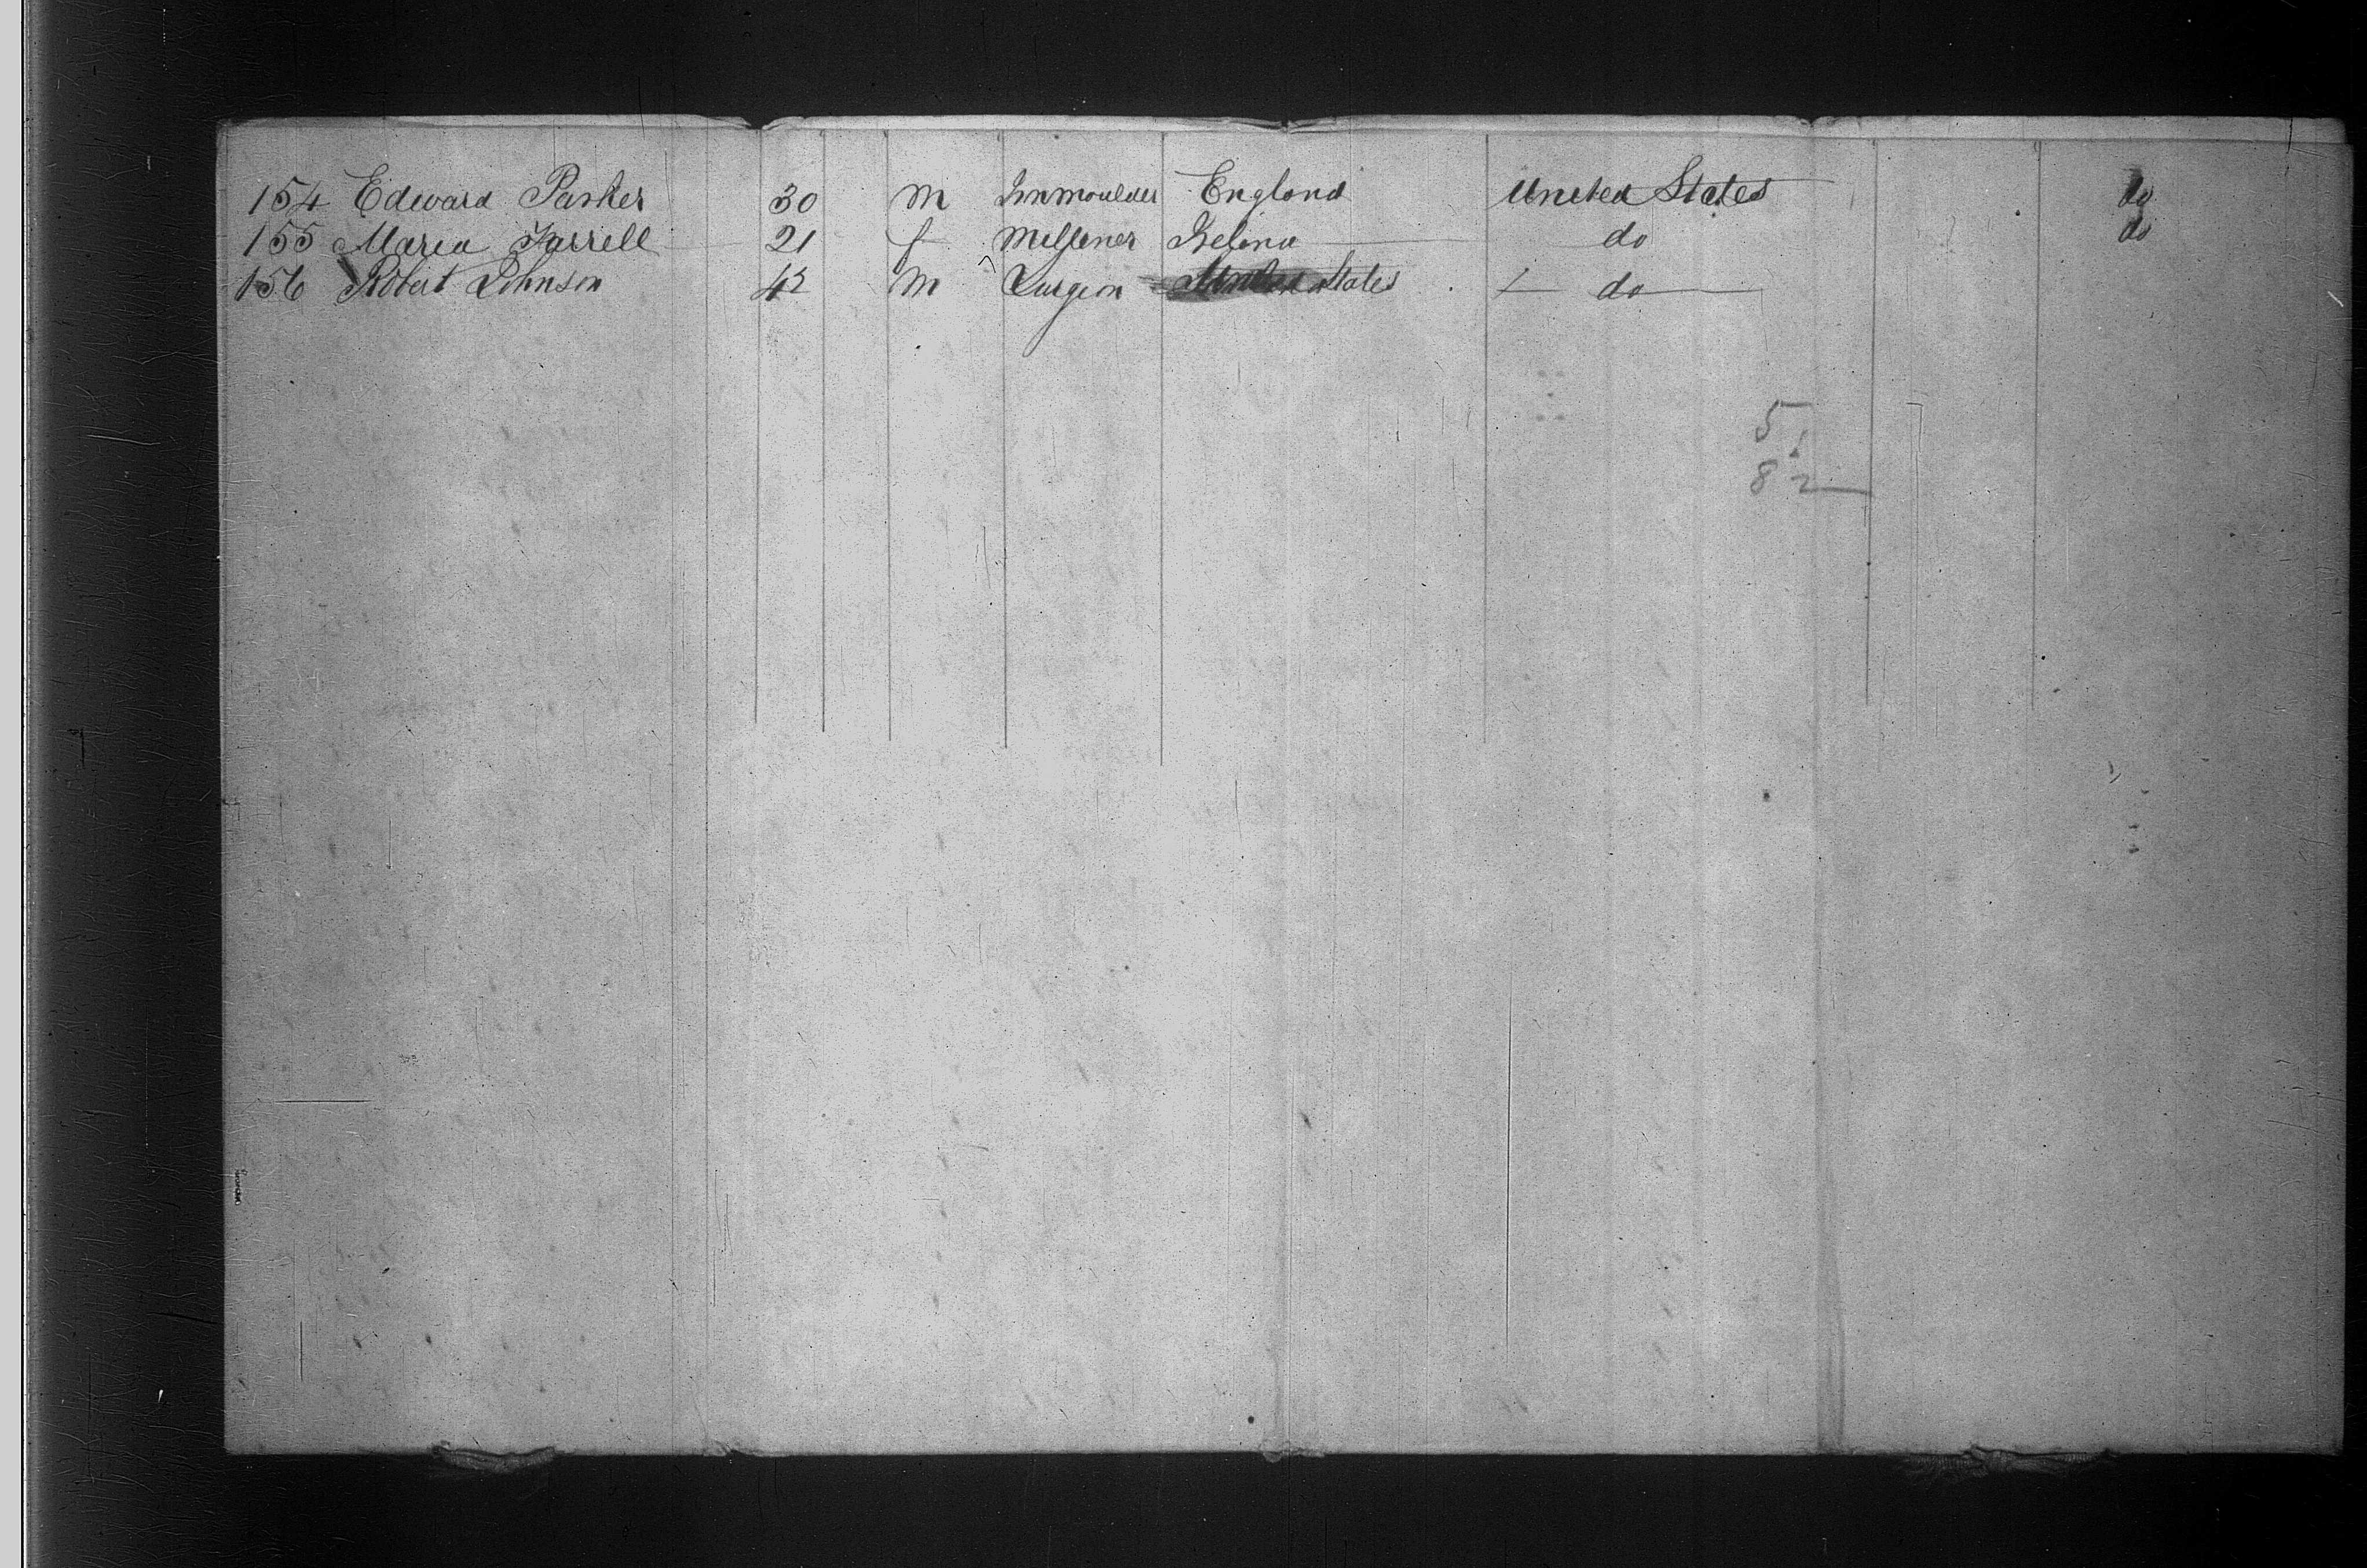 154 Edward Parker 30 M Ironmoulder England United States do
155 Maria Farrell 21 f Millener Ireland do do
156 Robert Johnson 42 M Surgeon United States do
5
82